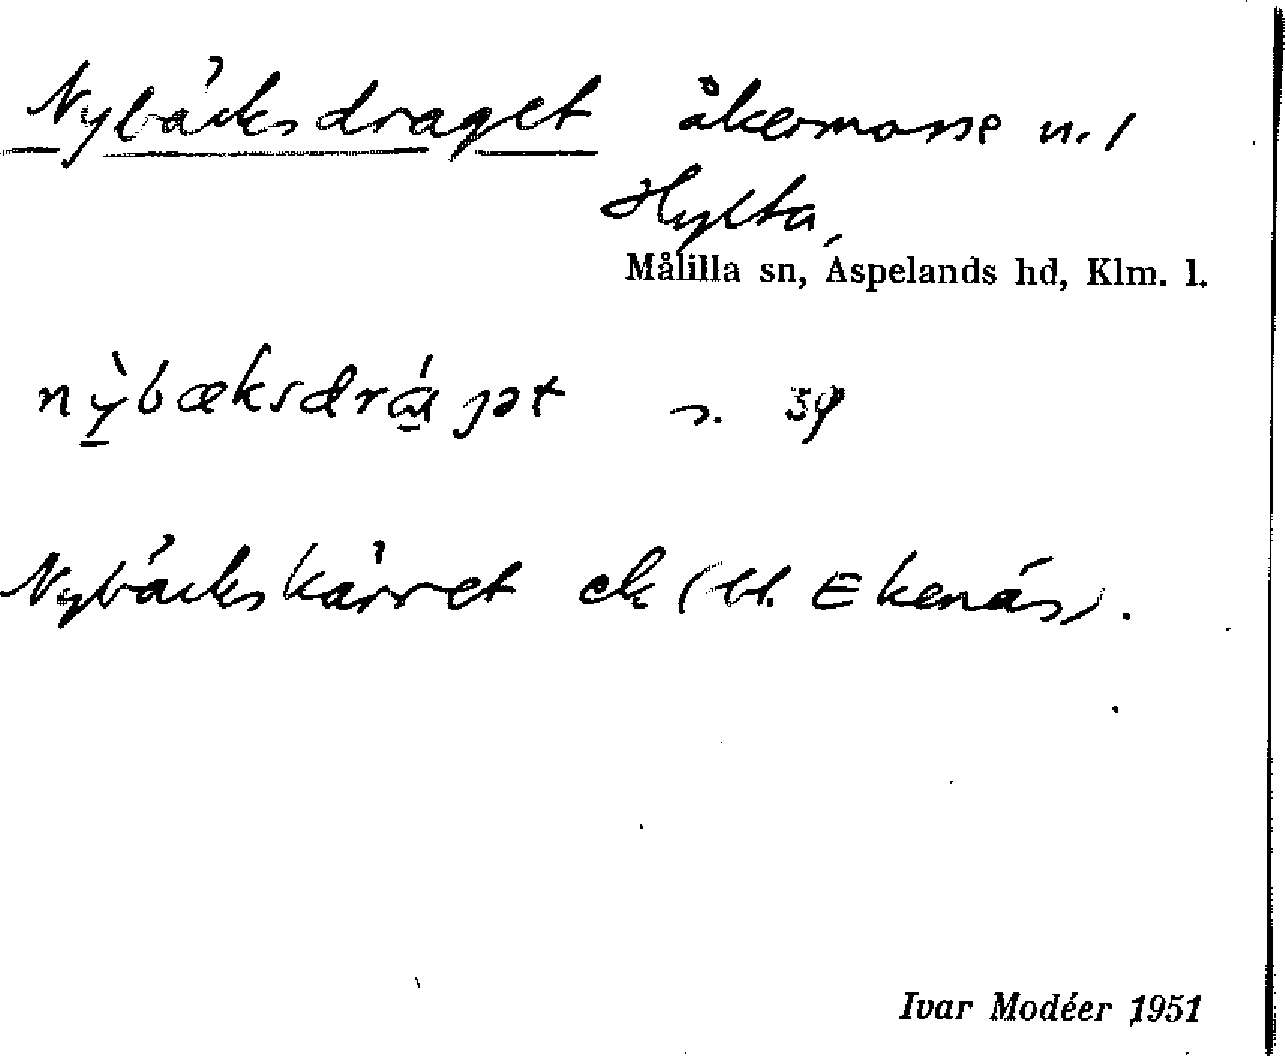 Nybäcksdraget åkermosse n. 1
Hylta,
Målilla sn, Aspelands hd, Klm. l.
Nybäckskärret ek (bl. Ekenäs).
Ivar Modéer 1951